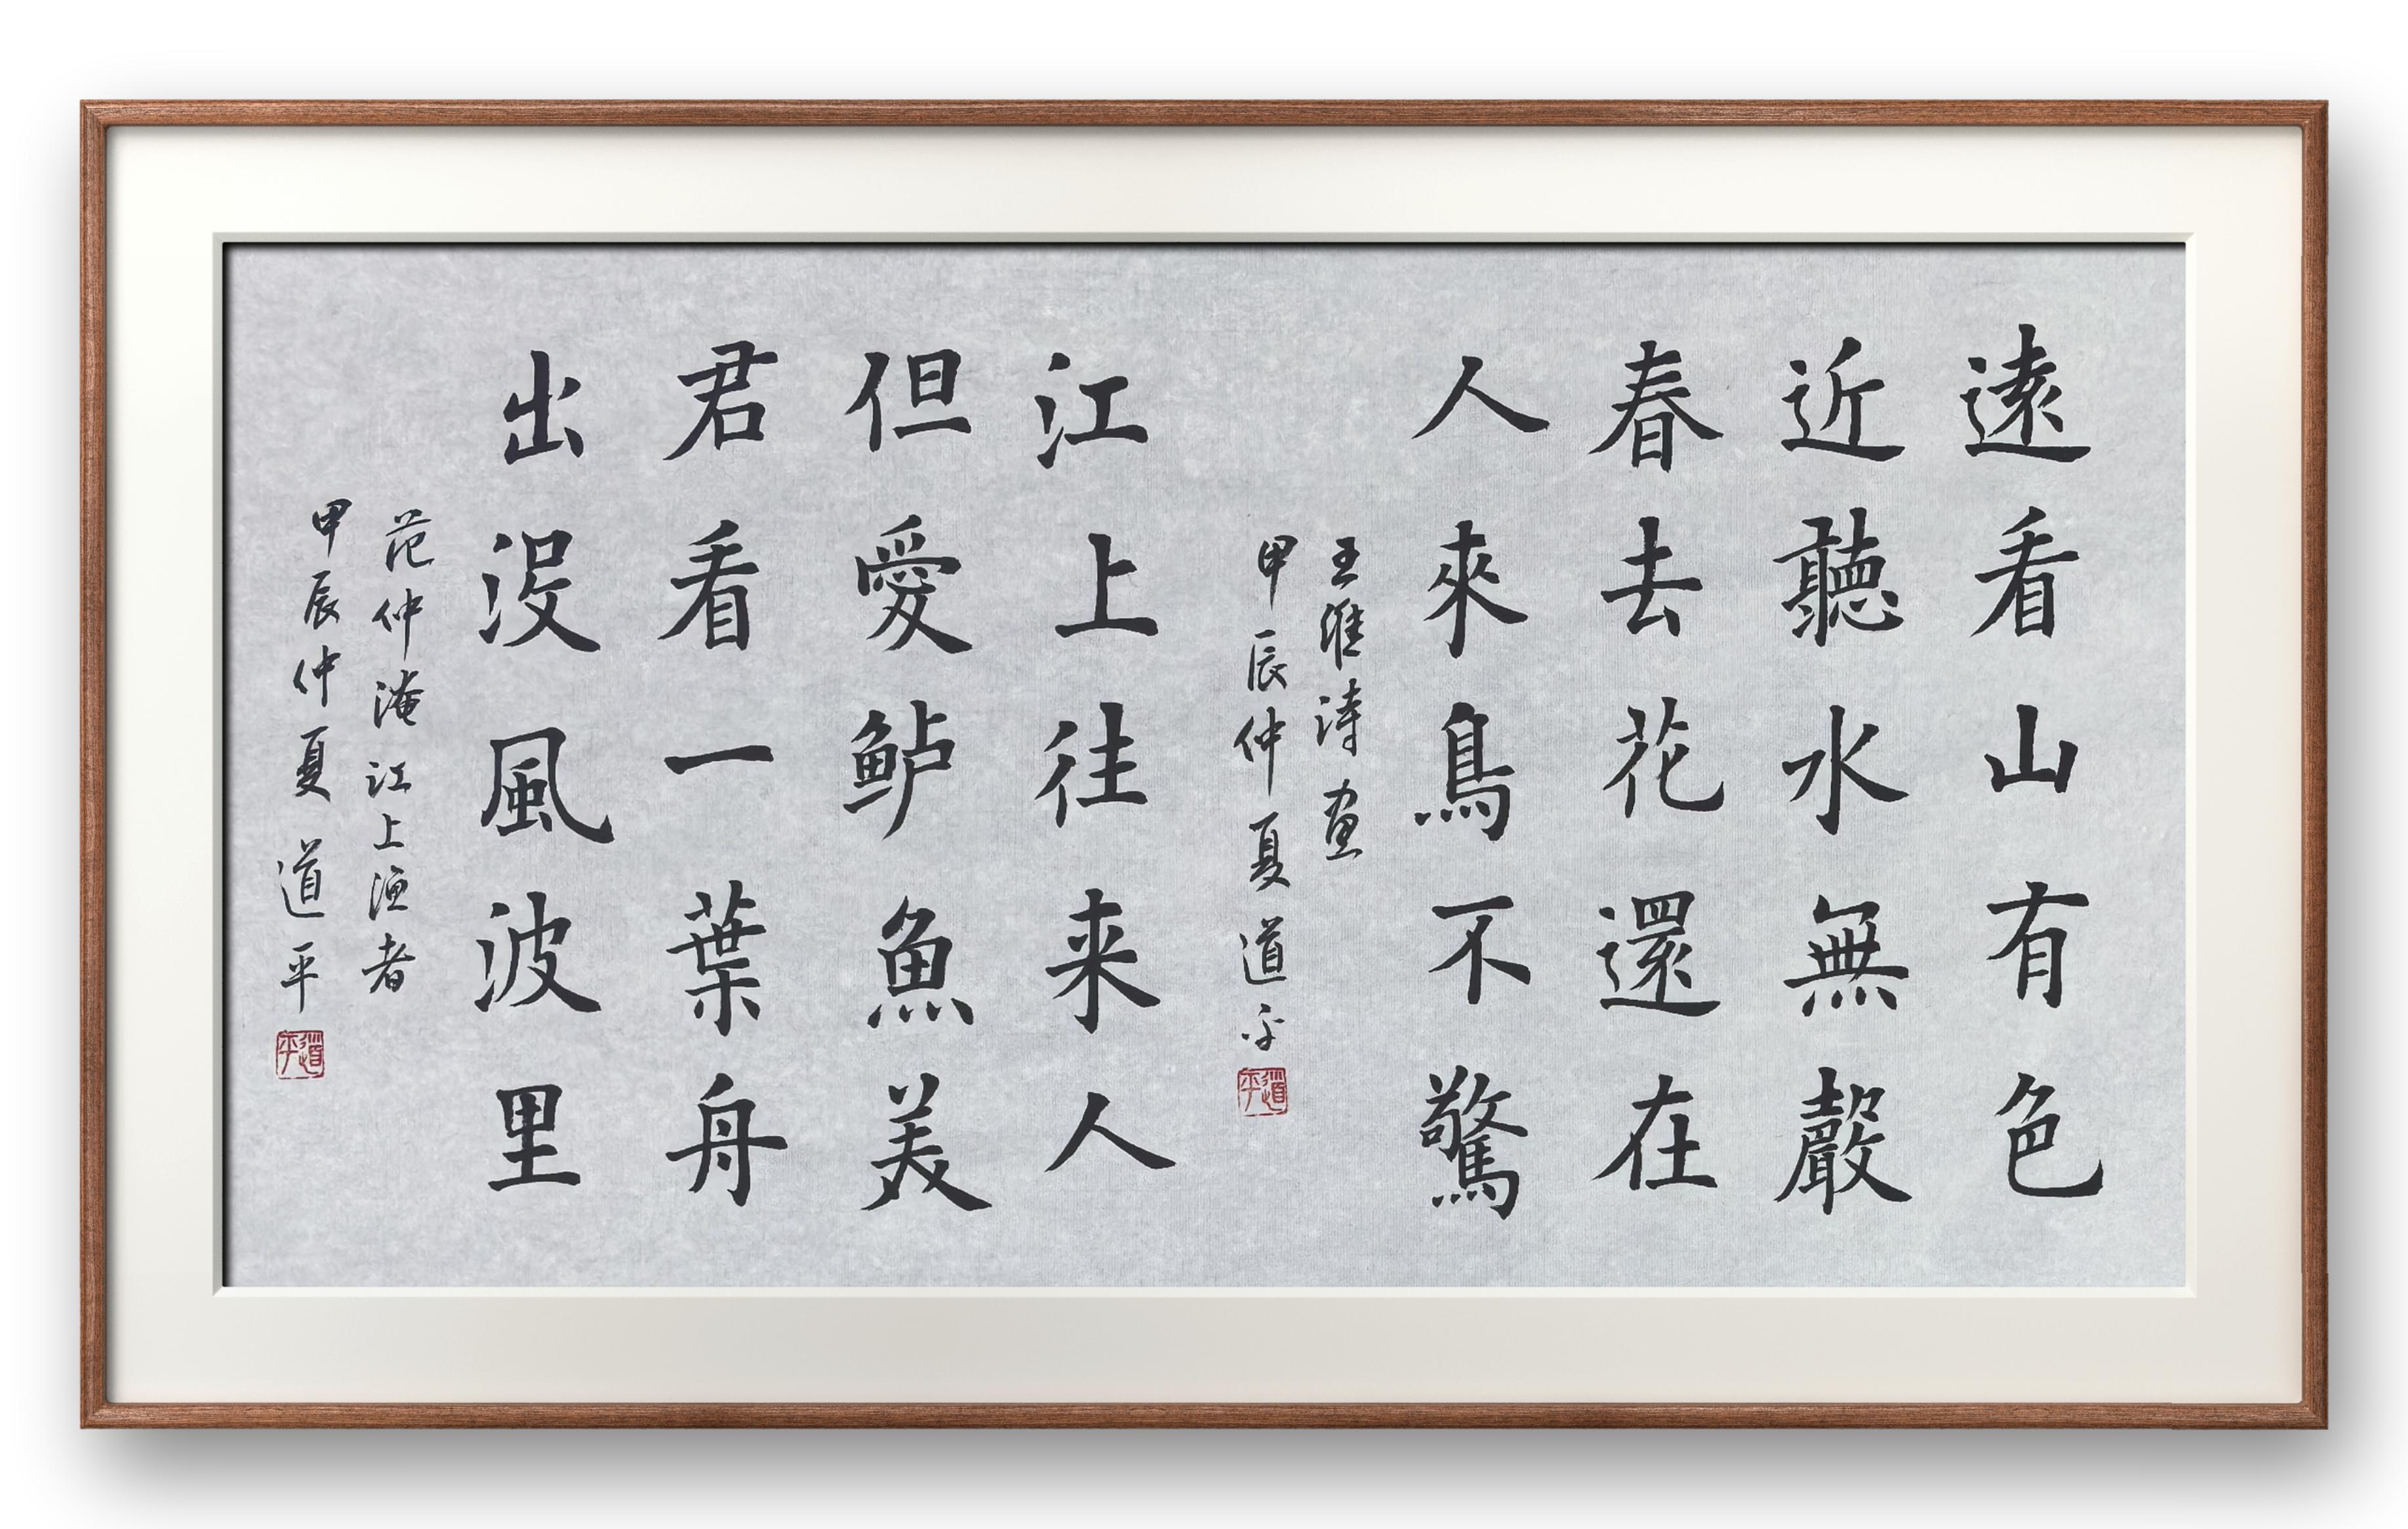 遠看山有色
近聽水無聲
春去花還在
人來鳥不驚
王维诗画
甲辰仲夏道平
道平
江上往来人
但愛鲈魚美
君看一葉舟
出没風波里
范仲淹江上渔者
甲辰仲夏道平
道平